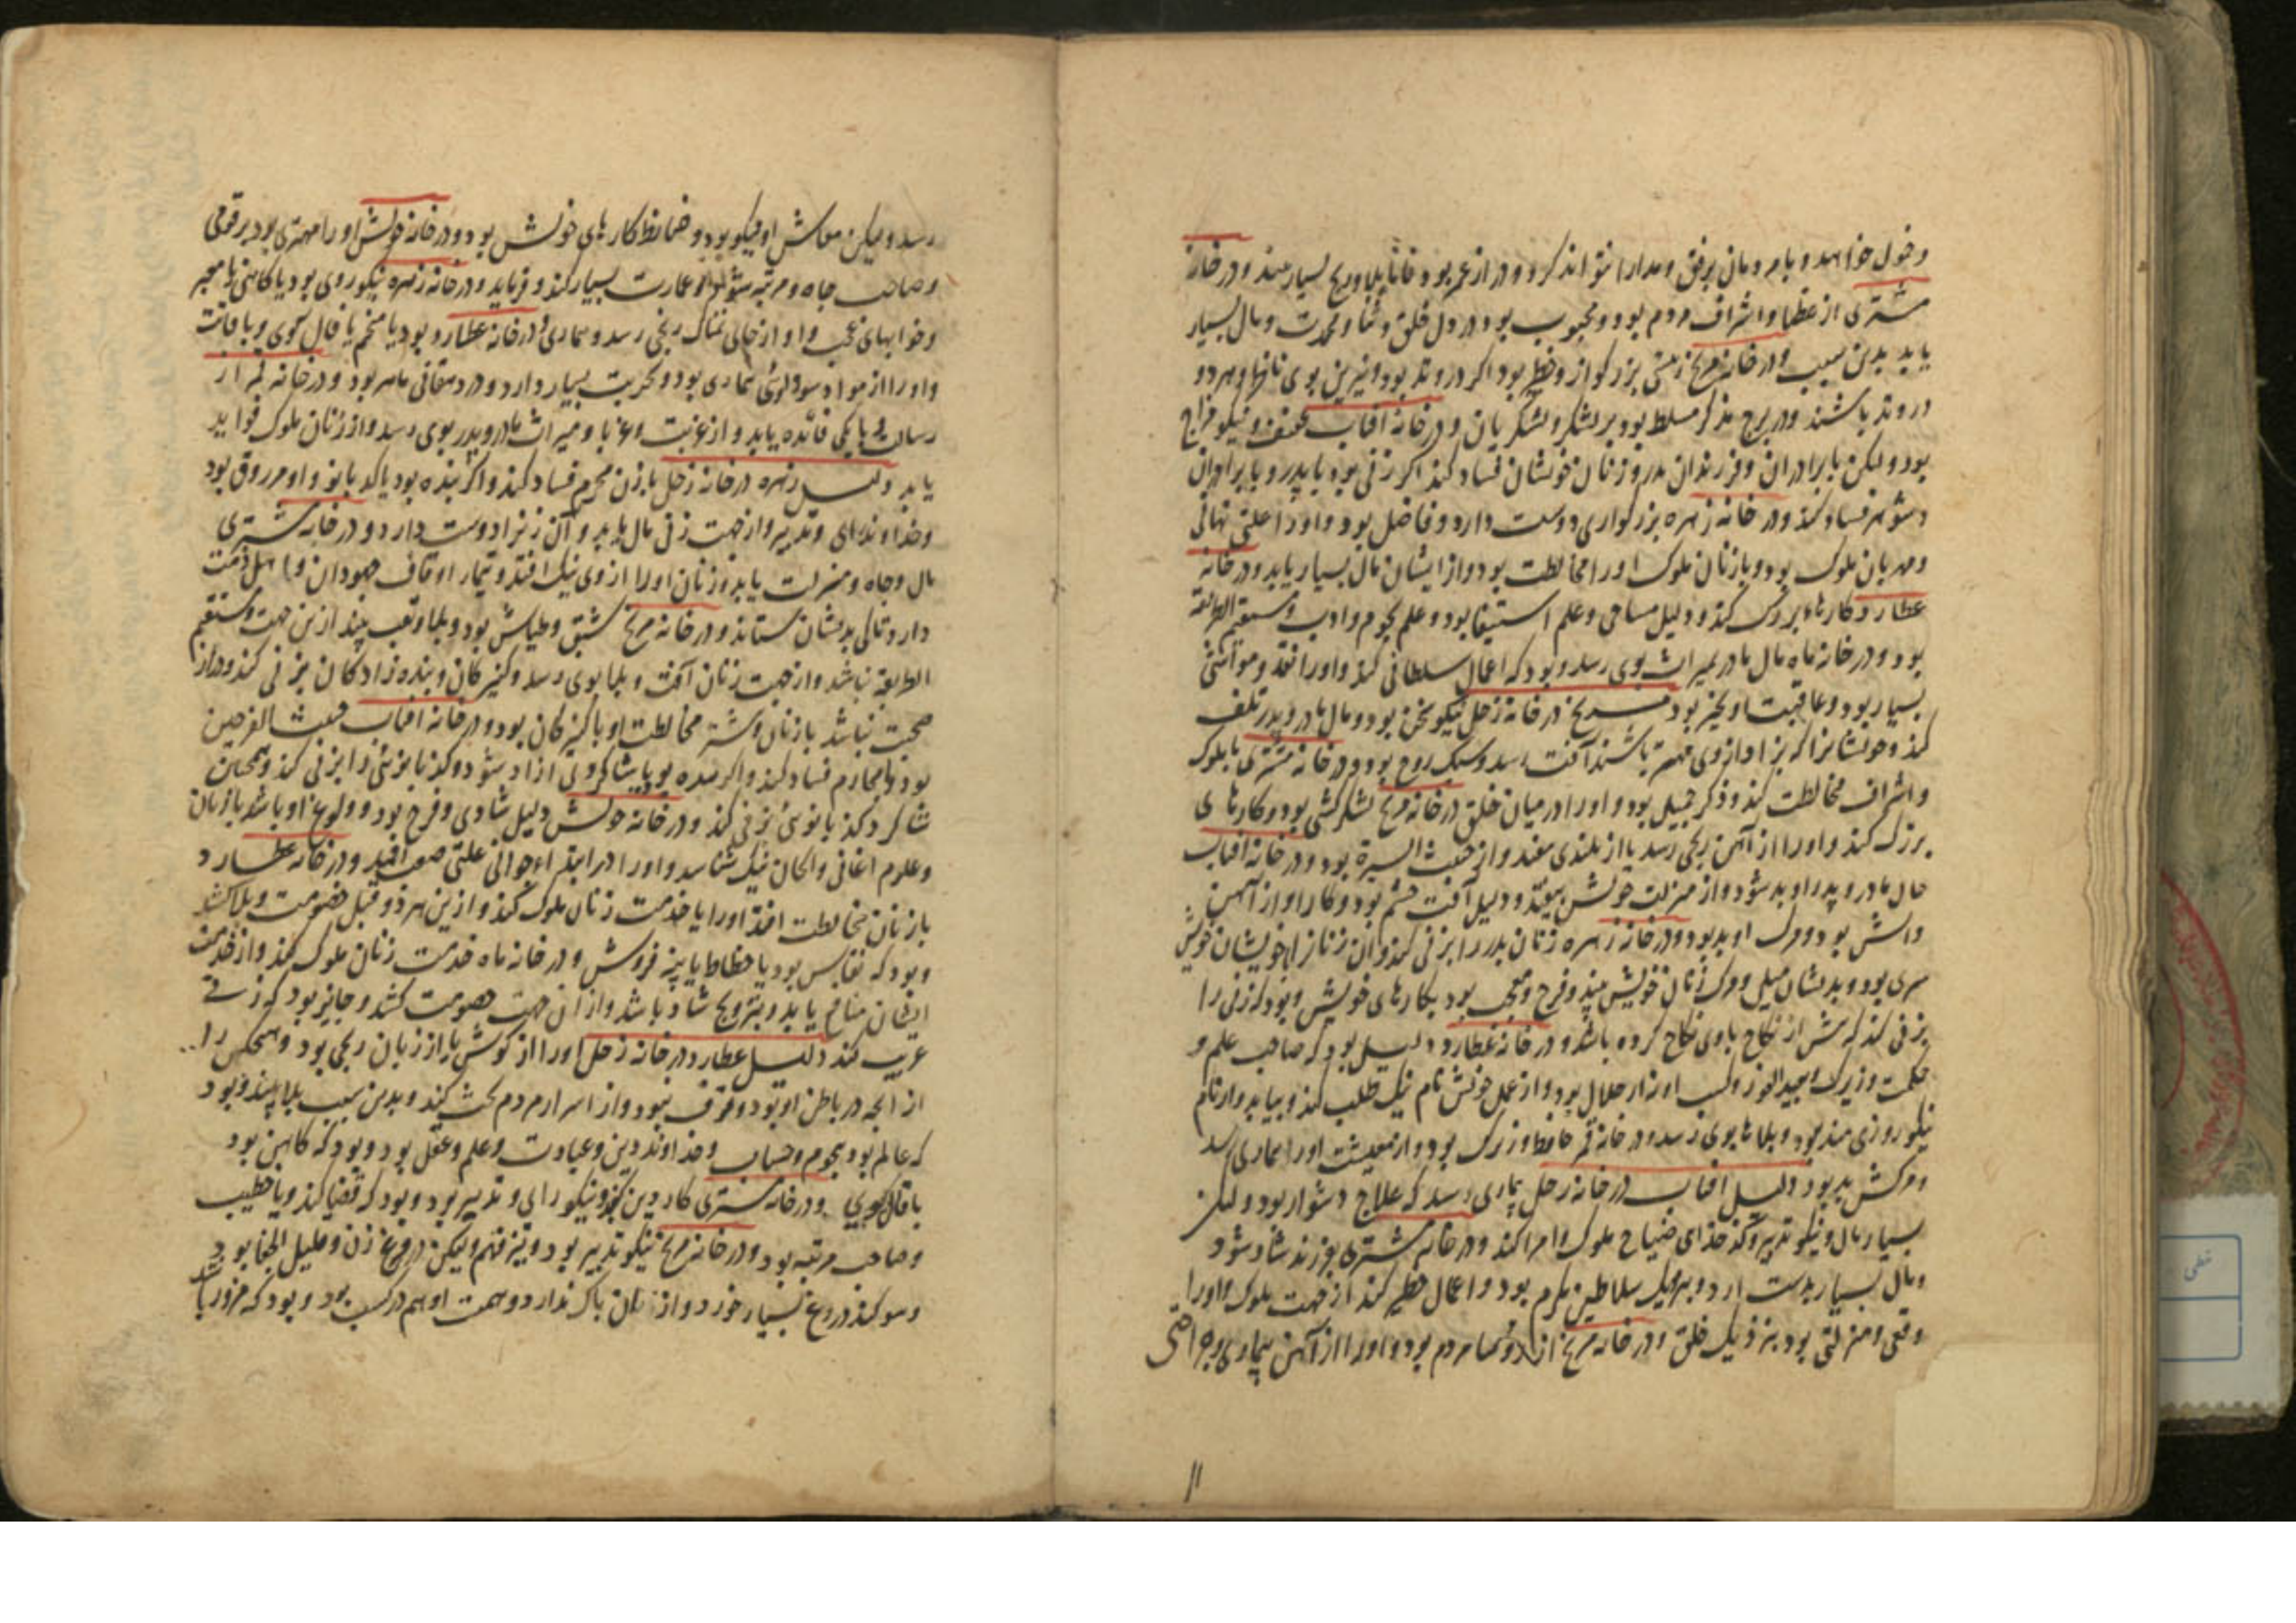 و مردمان برفق و مدارا نتواند کرد و دراز عمر بود و بسیار بیند و در خانه
مشتری از عظما و اشراف مردم بود و محبوب بود در دل خلق و ثنا و محمدت و مال بسیار
یابد بدین سبب و در خانه مریخ بود اگر در وتد بود و نیرین بوی ناظر و هر دو
در وتد باشند و در برج مذکر مسلط بود بر لشکر و لشکریان و در خانه آفتاب و نیکو مزاج
بود ولیکن با برادران و فرزندان پدر و زنان خویشان فساد کند اگر زنی بود با پدر و با برادران
و شوهر فساد کند و در خانه زهره بزرگواری دوست دارد و فاضل بود و او را علتی نهانی
بود و با زنان ملوک او را مخالطت بود و از ایشان مال بسیار یابد و در خانه
عطارد کارهاء بزرگ کند و دلیل مساحی و علم استیفا بود و علم نجوم و ادب و مستقیم الطریقه
بود و در خانه ماه مال مادر بمیراث بوی رسد و بود که اعمال سلطانی کند و او را نقد و مواشی
بسیار بود و عاقبت او بخیر بود مریخ در خانه زحل نیکو سخن بود و مال مادر و پدر تلف
کند و خویشانرا که از وی مهتر باشند آفت رسد و سبک روح بود و در خانه مشتری با ملوک
و اشراف مخالطت کند و ذکر جمیل بود او را در میان خلق در خانه مریخ لشکرکشی بود و کارهای
بزرگ کند و او را از آهن رنجی رسد یا از بلندی بیفتد و از خبیث السیرة بود و در خانه آفتاب
حال مادر و پدر او بد شود و از منزلت خویش بیفتد و دلیل آفت چشم بود و کار او از آهن
و آتش بود و مرگ او بد بود و در خانه زهره زنان پدر را بزنی کند و آن زنان از خویشان خویش
بود و بدیشان میل و مرگ زنان خویش بیند و فرح و معجب بود بکارهای خویش و بود که زنی را
بزنی کند که پیش از نکاح با وی نکاح کرده باشد و در خانه عطارد دلیل بود که صاحب علم و
حکمت و زیرک و بعید الغور و کسب او از حلال بود و از عمل خویش نام نیک طلب کند و بیابد و از نام
نیکو روزی مند بود و بلاها بوی رسد و در خانه قمر حافظ و زیرک بود و از معیشت او را بیماری رسد
و مرگش بد بود دلیل آفتاب در خانه زحل بیماری رسد که علاج دشوار بود ولیکن
بسیار مال و نیکو تدبیر و کدخدای ضیاع ملوک و امرا کند و در خانه مشتری بفرزند شاد شود
و مال بسیار بدست آرد و بنزدیک سلاطین مکرم بود و اعمال خطیر کند از جهت ملوک و او را
وقعی و منزلتی بود بنزدیک خلق و در خانه مریخ از رؤسا مردم بود و او را از آهن بیماری و جراحتی
رسد ولیکن معاش او نیکو بود و ضابط کارهای خویش بود و در خانه خویش او را مهتری بود بر قومی
و صاحب جاه و مرتبه شود و عمارت بسیار کند و فرماید و در خانه زهره نیکو روی بود یا کاهنی یا معبر
و خوابهای عجب و او از جای نمناک رنجی رسد و بیماری و در خانه عطارد بود یا منجم یا فال گوی و با فاقت
و او را از مواد سوداوی بیماری بود و تجربت بسیار دارد و در دهقانی ماهر بود و در خانه قمر از
رسالت و پیکی فائده یابد و از غربت و میراث مادر و پدر بوی رسد و از زنان ملوک فواید
یابد دلیل زهره در خانه زحل با زن محرم فساد کند و اگر بنده بود با کدبانو و او مرزوق بود
و خداوند رای و تدبیر و از جهت زنی مال یابد و آن زنرا دوست دارد و در خانه مشتری
مال و جاه و منزلت یابد و زنان او را از وی نیک افتد و تیمار اوقاف جهودان و اهل ذمت
دارد تا بدیشان ستاند و در خانه مریخ شبق و طیاش بود و بلا و تعب بیند ازین جهت و مستقیم
الطریقه نباشد و از جهت زنان آفت و بلا بوی رسد و کنیزکان و بنده زادگان بزنی کند و دراز
صحبت نباشد با زنان و بیشتر مخالطت او با کنیزکان بود و در خانه آفتاب خبیث الفرجین
بود و با محارم فساد کند و اگر بنده بود یا شاگردی آزاد شود و کدبانوی را بزنی کند و همچنین
شاگرد کدبانوی بزنی کند و در خانه خویش دلیل شادی و فرح بود و ولوع او باشد با زنان
و علوم اغانی و الحان نیک شناسد و او را در ابتداء جوانی علتی صعب افتد و در خانه عطارد
با زنان مخالطت افتد او را یا خدمت زنان ملوک کند و ازین هر دو قبل خصومت و بلا کشد
و بود که نقاش بود یا خطاط یا پنبه فروش و در خانه ماه خدمت زنان ملوک کند و از خدمت
ایشان منافع یابد و بتزویج شاد باشد و از آن جهت خصومت کشد و جایز بود که زنی
غریب کند دلیل عطارد در خانه زحل او را از گوش یا از زبان رنجی بود و هیچکس را
از آنچه در باطن او بود وقوف نبود و از اسرار مردم بحث کند و بدین سبب بلا بیند و بود
که عالم بود بنجوم و حساب و خداوند دین و عبادت و علم و عقل بود و بود که کاهن بود
یا فال گوی و در خانه مشتری کار دین کند و نیکو رای و تدبیر بود و بود که قضا کند و یا خطیب
و صاحب مرتبه بود و در خانه مریخ نیکو تدبیر بود و تیز فهم ولیکن دروغ زن و قلیل الجفا بود
و سوگند دروغ بسیار خورد و از زنان باک ندارد و همت او هم در کسب بود و بود که مزور باشد